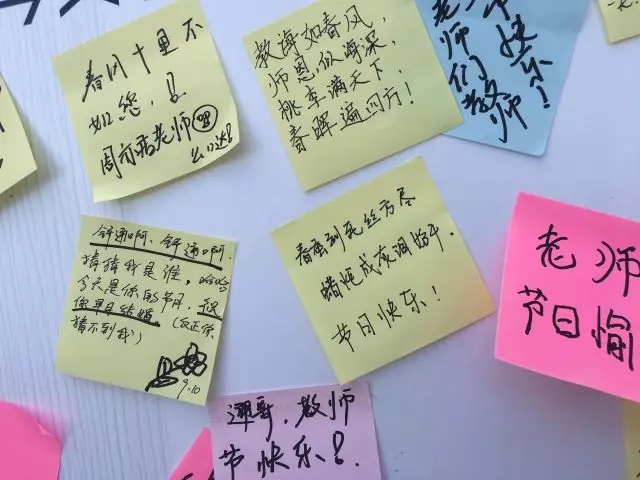 春风十里不
如您,!
周 老师
么么哒!
教诲如春风,
师恩似海深,
桃李满天下,
春晖遍四方!
老师们
教师
快乐!
舒通啊、舒通啊,
猜猜我是谁,哈哈
今天是你的节日,祝
你早日结婚(反正你
猜不到我)
9.10
春蚕到死丝方尽
蜡炬成灰泪始干.
节日快乐!
老师
节日愉
哥,教师
节快乐!